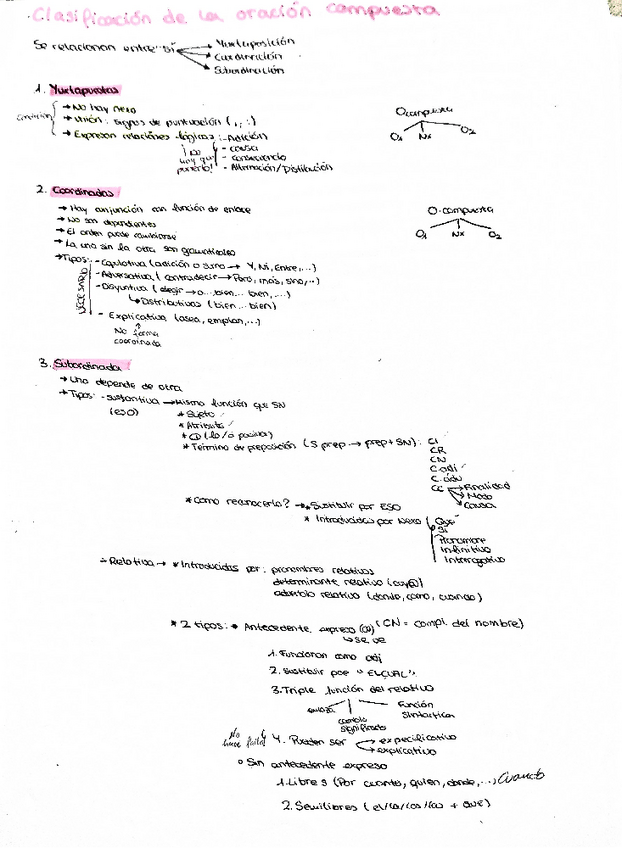 Clasificación de la oración compuesta
Se relacionan entre sí → Yuxtaposición
→ Coordinación
→ Subordinación
1. Yuxtapuestas
→ No hay nexo
→ Unión: signos de puntuación (, ; :)
→ Expresan relaciones lógicas: - Adición
¡ No hay que ponerlo! - causa
- consecuencia
- Alternación/Distribución
O compuesta
O1 Nx O2
2. Coordinadas
→ Hay conjunción con función de enlace
→ No son dependientes
→ El orden puede cambiarse
→ La una sin la otra son gramaticales
→ Tipos: - Copulativa (adición o suma → Y, Ni, Entre,...)
- Adversativa (contradecir → Pero, mas, sino,..)
- Disyuntiva (elegir → o...bien... bien,....)
↳ Distributivas (bien... bien)
- Explicativa (osea,
No forma
coordinada
NECESARIO
O. compuesta
O1 Nx O2
3. Subordinada:
→ Una depende de otra
→ Tipos: - sustantiva → Misma función que SN
(eso) * Sujeto
* Atributo
* CD (lo/a pasiva)
* Término de preposición (S prep → prep + SN): CI
CR
CN
C.adj
C. adv
CC → Finalidad
→ Modo
→ Causa
* Como reconocerla? → * Sustituir por ESO
* Introducidas por Nexo (Que
Si
Pronombre
Infinitivo
Interrogativo
- Relativa → * Introducidas por: pronombres relativos
determinante relativo (cuyo)
adverbio relativo (donde, como, cuando)
* 2 tipos: * Antecedente expreso (CN = compl. del nombre)
↳ se ve
1. Funcionan como adj
2. Sustituir por "EL CUAL"
3. Triple función del relativo
enlaza
significado
Función
Sintáctica
No hace falta! 4. Pueden ser → especificativo
→ explicativo
° Sin antecedente expreso
1. Libres (Por cuanto, quien, donde,...) Cuando
2. Semilibres (el/la/los/las + que)